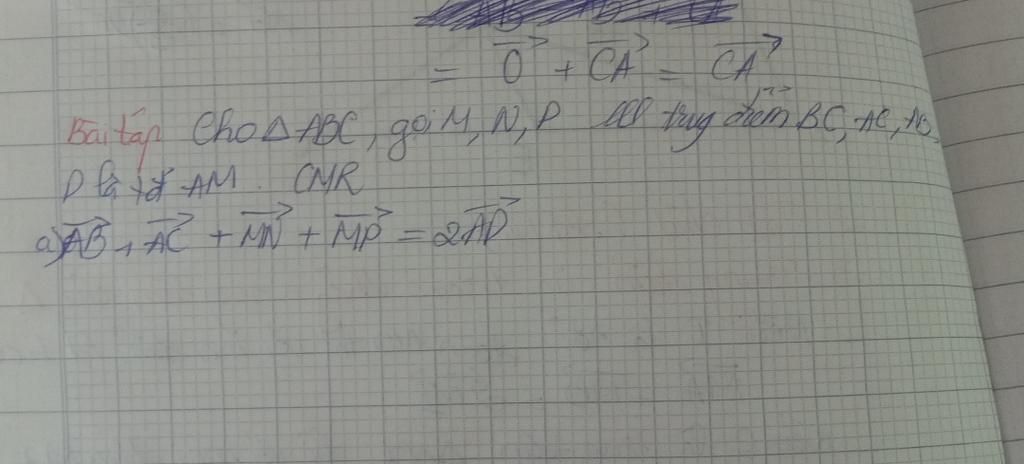 = \vec{0} + \overrightarrow{CA} = \overrightarrow{CA}
Bài tập Cho Δ ABC, gọi M, N, P trung điểm BC, AC, AB,
D là tđ AM. CMR
a) \overrightarrow{AB} + \overrightarrow{AC} + \overrightarrow{MN} + \overrightarrow{MP} = 2\overrightarrow{AD}